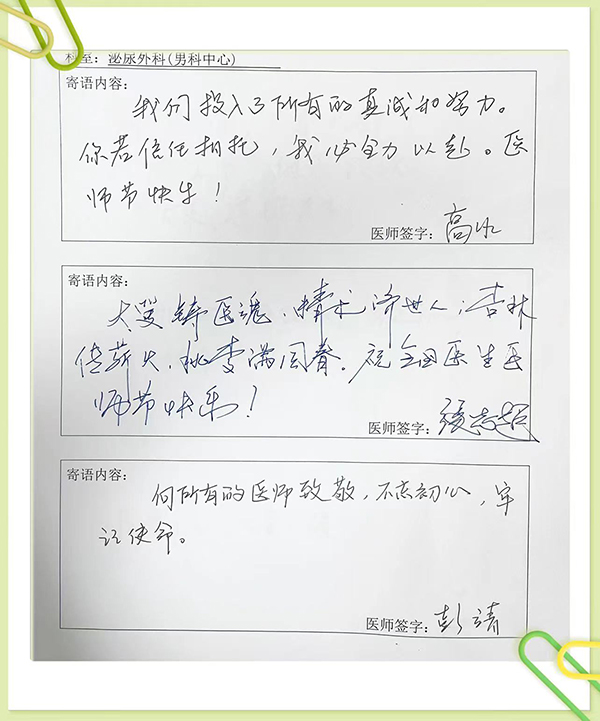 科室：泌尿外科(男科中心)
寄语内容：
我们投入了所有的真诚和努力。
你若信任相托，我必全力以赴。医
师节快乐！
医师签字：高
寄语内容：
大爱铸医魂，精术济世人；杏林
传薪火，桃李满园春。祝全国医生医
师节快乐！
医师签字：张志超
寄语内容：
向所有的医师致敬，不忘初心，牢
记使命。
医师签字：彭靖